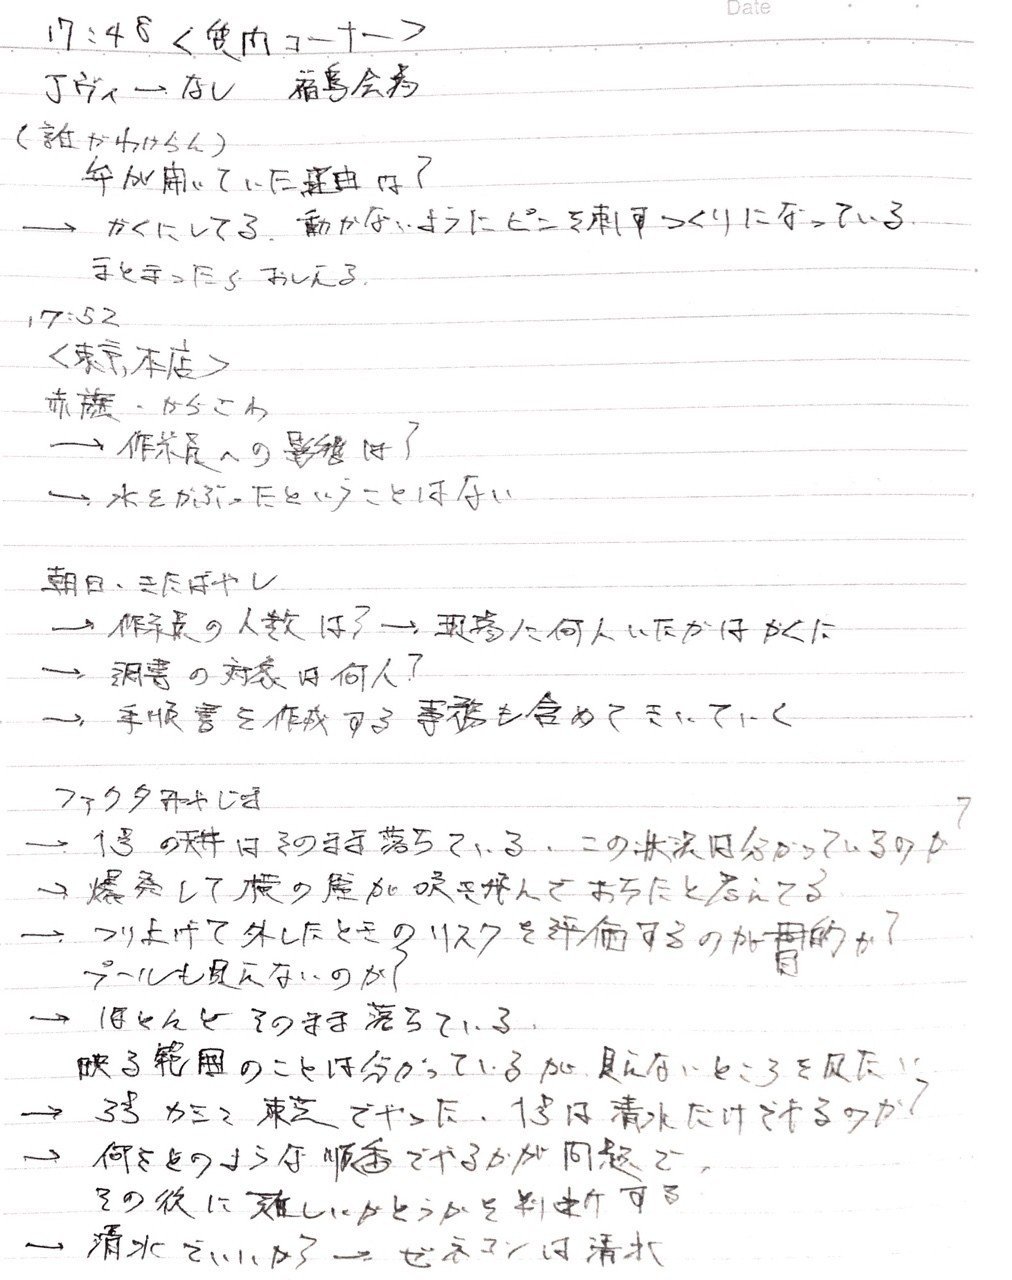 Date
17:48 <案内コーナー>
Jヴィ→なし 福島会場
(誰かわからん)
弁が開いていた理由は?
→ かくにしてる. 動かないようにピンを刺すつくりになっている.
まとまったらおしえる.
17:52
<東京本店>
赤旗・からさわ
→ 作業員への影響は?
→ 水をかぶったということはない
朝日・きたばやし
→ 作業員の人数は?→ 現場に何人いたかはかくに
→ 調書の対象は何人?
→ 手順書を作成する事務も含めてきいていく
ファクタみやじま
→ 1号の天井はそのまま落ちている. この状況は分かっているのか?
→ 爆発して横の壁が吹き飛んでおちたと考えてる
→ つり上げて外したときのリスクを評価するのが目的か?
プールも見えないのか?
→ ほとんどそのまま落ちている.
映る範囲のことは分かっているが見えないところを見たい
→ 3号カミと東芝でやった. 1号は清水だけでやるのか?
→ 何をどのような順番でやるかが問題で,
その後に難しいかどうかを判断する
→ 清水でいいか?→ ゼネコンは清水